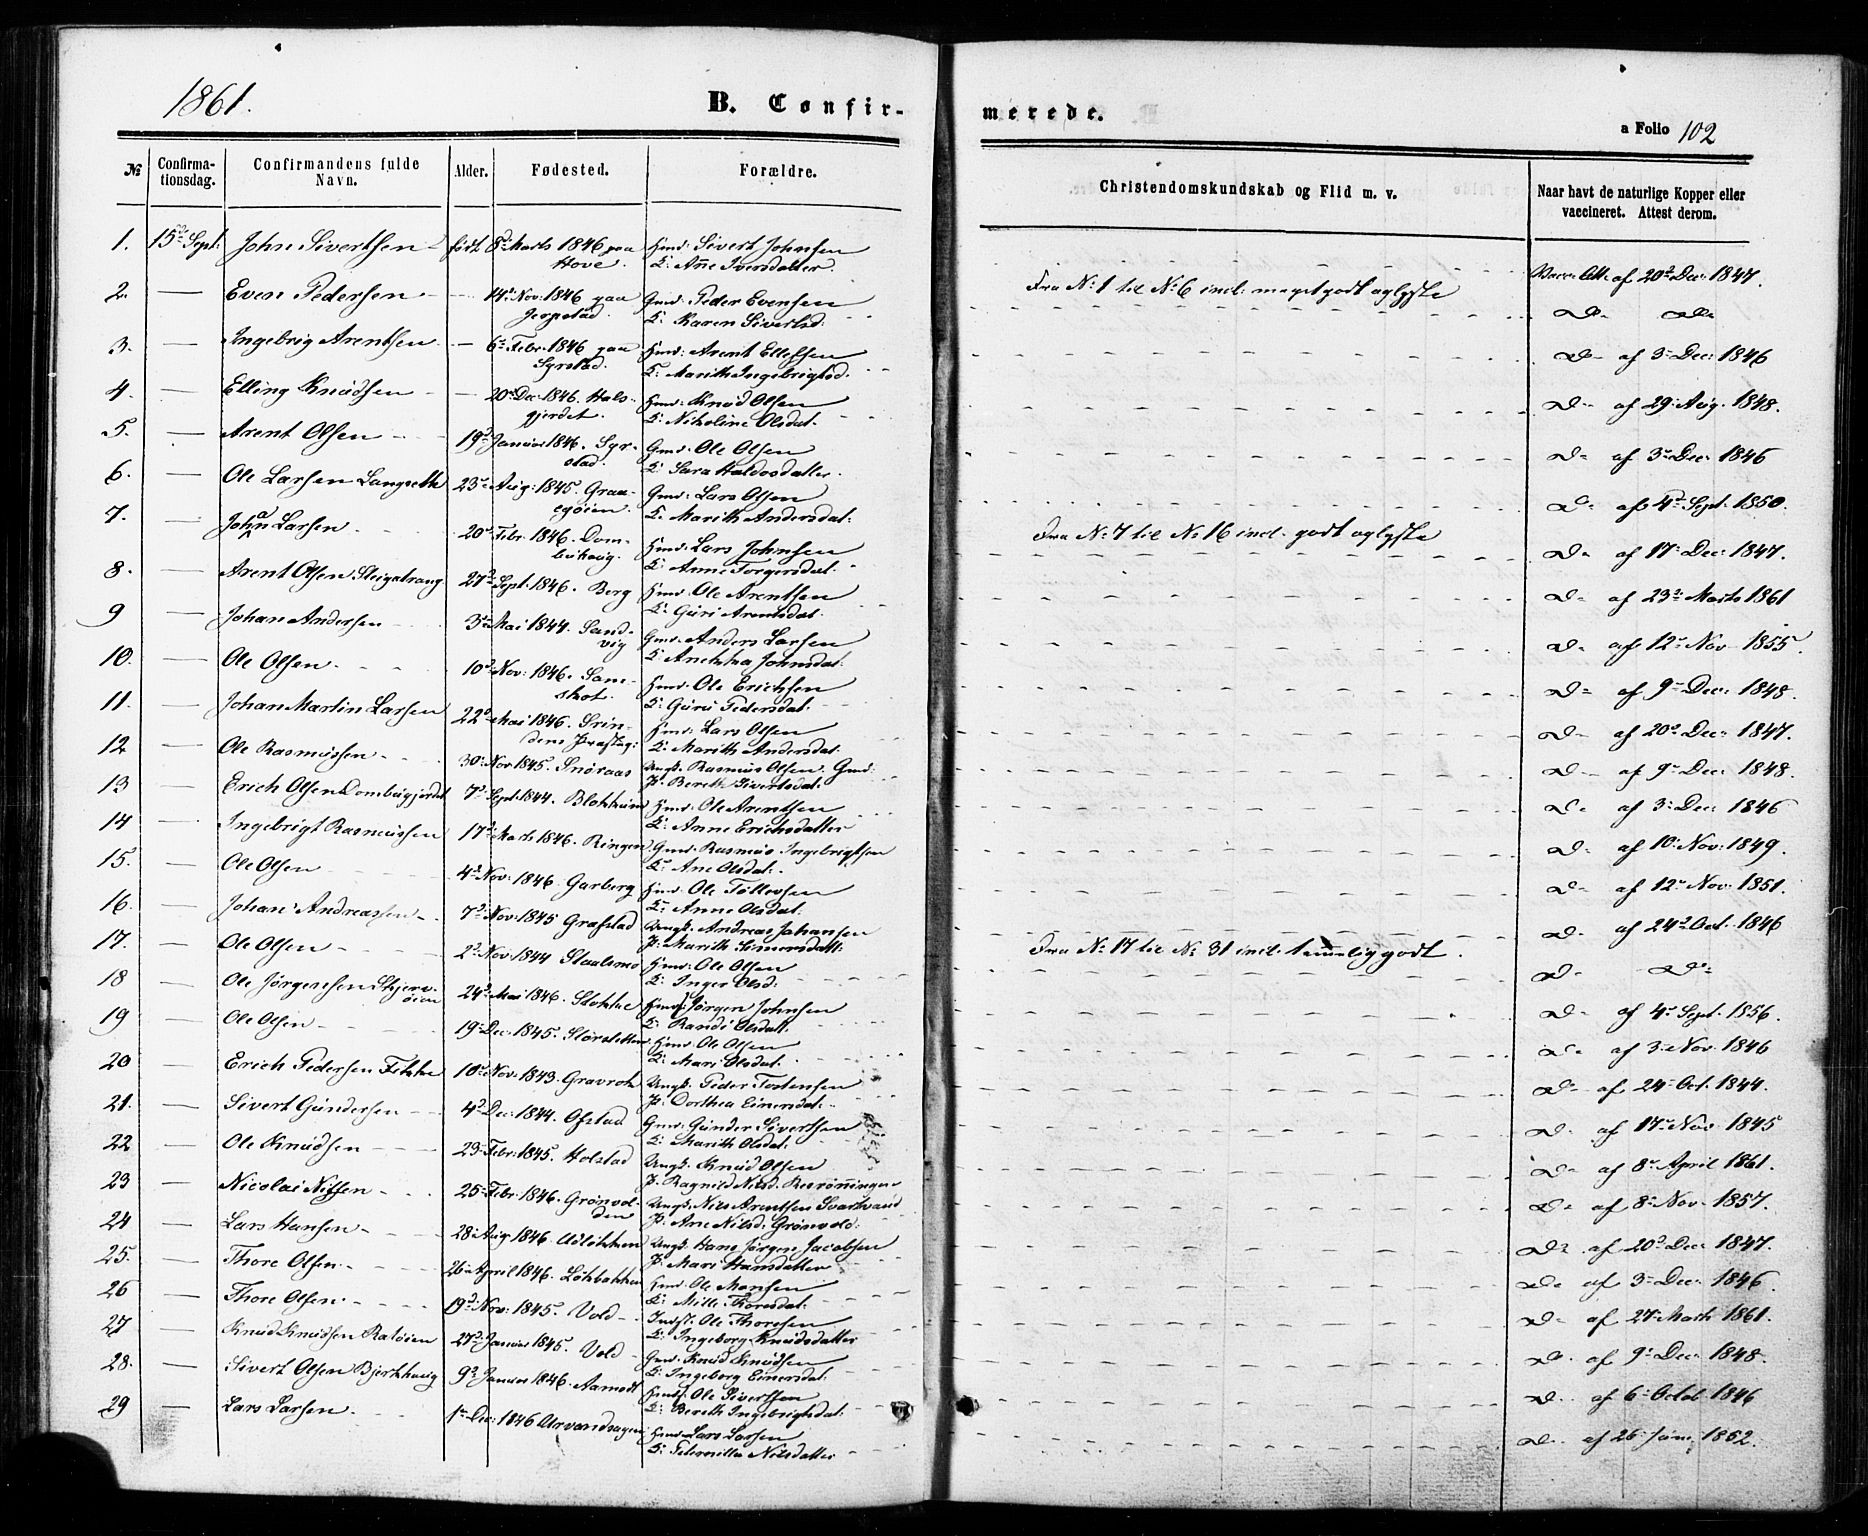 1861.
B. Confir-
merede.
a Folio 102
№
Confirma-
tionsdag.
Confirmandens fulde
Navn.
Alder.
Fødested.
Forældre.
Christendomskundskab og Flid m. v.
Naar havt de naturlige Kopper eller
vaccineret. Attest derom.
1. 15de Sept: John Sivertsen født 8de Marts 1846 paa Hmd: Sivert Johnsen
Hove. K: Ane Iversdatter.
Vacc. Att. af 20de Dec: 1847.
2. — Even Pedersen — 14de Nov: 1846 paa Gmd: Peder Evensen
Jerpstad. K: Karen Sivertsd:
Fra No 1 til No 6 incl: meget godt og lyste
Do Do
3. — Ingebrig Arentsen — 6te Febr. 1846 paa Hmd: Arent Ellefsen
Syrstad. K: Marith Ingebrigtsd.
Do af 3 Dec: 1846
4. — Elling Knudsen — 20de Dec: 1846. Hals- Hmd: Knud Olsen
gjerdet. K: Nikoline Olsdat.
Do af 29. Aug. 1848.
5. — Arent Olsen 19de Januar 1846. Syr- Gmd: Ole Olsen
stad. K: Sara Haldosdatter.
Do af 3 Dec: 1846
6. — Ole Larsen Langsethe 23de Aug: 1845. Graa- Gmd: Lars Olsen
egøien. K. Marith Andersdat:
Do af 4de Sept. 1850.
7. — Johan Larsen. 20de Febr. 1846. Dom- Hmd: Lars Johnsen
buhaug. K. Anne Torgersdat.
Fra No 7 til No 16 incl. godt og lyste
Do af 17 Dec: 1847.
8. — Arent Olsen Steigatrang 27de Sept. 1846. Berg Hmd: Ole Arentsen
K: Guri Arentsdat.
Do af 23de Marts 1861
9 — Johan Andersen 3de Mai 1844. Sand- Gmd: Anders Larsen
vig K: Anekha Johnsdat:
Do af 12 Nov 1855.
10. — Ole Olsen 10de Nov: 1846. Sam- Hmd: Ole Erichsen
skot. K: Guru Pedersdat:
Do af 9 Dec: 1848.
11. — Johan Martin Larsen 22de Mai 1846. Srin- Hmd: Lars Olsen
dens Præsteg: K: Marith Andersdat:
Do af 20de Dec: 1847.
12 — Ole Rasmussen 30: Nov 1845. Snøraas Ungk. Rasmus Olsen. Gmd:
P: Bereth Sivertsdat:
Do af 9 Dec: 1848.
13 — Erich Olsen Dombugjerdet 7de Sept. 1844. Blokhuus Hmd: Ole Arentsen
K: Anne Erichsdatter
Do af 3 Dec: 1846
14 — Ingebrigt Rasmussen 17de Marts 1846. Ringen Gmd: Rasmus Ingebrigtsen
K: Ane Olsdat:
Do af 10: Nov: 1849.
15. — Ole Olsen 4de Nov: 1846 Garberg Hmd: Ole Tollevsen
K: Anne Olsdat:
Do af 12 Nov. 1851.
16. — Johan Andreassen 7de Nov: 1845 Grafstad Ungk. Andreas Johansen
P: Marith Simensdatt:
Do af 24de Oct. 1846
17. — Ole Olsen 2de Nov: 1844 Staalsmo Hmd: Ole Olsen
K: Inger Olsd:
Fra No 17 til No 31 incl. temmelig godt.
Do Do
18 — Ole Jørgensen Skjerv-
øien 24de Mai 1846. Stokke Hmd: Jørgen Johnsen
K: Randi Olsdatt.
Do af 4 Sept. 1856.
19 — Ole Olsen 19de Dec: 1845. Størsletten Hmd: Ole Olsen
K: Mari Olsdat.
Do af 3. Nov. 1846
20 — Erich Pedersen Fikke 10 Nov: 1843. Gravrok Ungk: Peder Tostensen
P: Dorthea Einersdat:
Do af 24 Oct. 1844.
21. — Sivert Gundersen 4de Dec: 1844. Ofstad Gmd: Gunder Sivertsen
K: Marith Olsdat:
Do af 17 Nov 1845
22 — Ole Knudsen 23 Febr: 1845. Holstad Ungk. Knud Olsen
P. Ragnild Nilsd.
Do af 8 April 1861.
23 — Nicolai Nilsen 25 Febr: 1846. Grønvol- Ungk. Nils Arentsen Svartvand
den P: Ane Nilsd: Grønvold:
Do af 8 Nov. 1857.
24 — Lars Hansen 28: Aug: 1846. Udløkken Ungk. Hans Jørgen Jacobsen
P: Mari Hansdatter
Do af 20de Dec: 1847.
25. — Thore Olsen 26 April 1846. Løkbakken Hmd: Ole Monsen
K: Mille Thoresdat:
Do af 3 Dec: 1846.
26 — Thore Olsen 19de Nov: 1845. Vold Indst: Ole Thoresen
K: Ingeborg Knudsdatter
Do af 27 Marts 1861.
27 — Knud Knudsen Ratøien 27de Januar 1845. Vold Gmd: Knud Knudsen
K: Ingeborg Einersdat.
Do. af 9 Dec: 1848.
28. — Sivert Olsen Bjerkhaug 9de Januar 1846. Aamodt Hmd: Ole Sivertsen
K: Bereth Ingebrigtsdat:
Do. af 6: Octob 1846
29 — Lars Larsen. 1 Dec: 1846 Hmd: Lars Larsen
K: Nilsdatter
Do. af 26 Juni 1852.